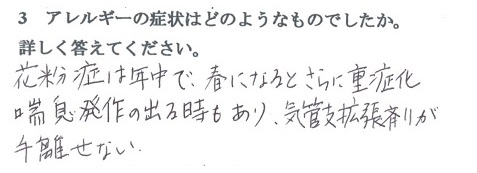 3　アレルギーの症状はどのようなものでしたか。
詳しく答えてください。
花粉症は年中で、春になるとさらに重症化
喘息発作の出る時もあり、気管支拡張剤が
手離せない。